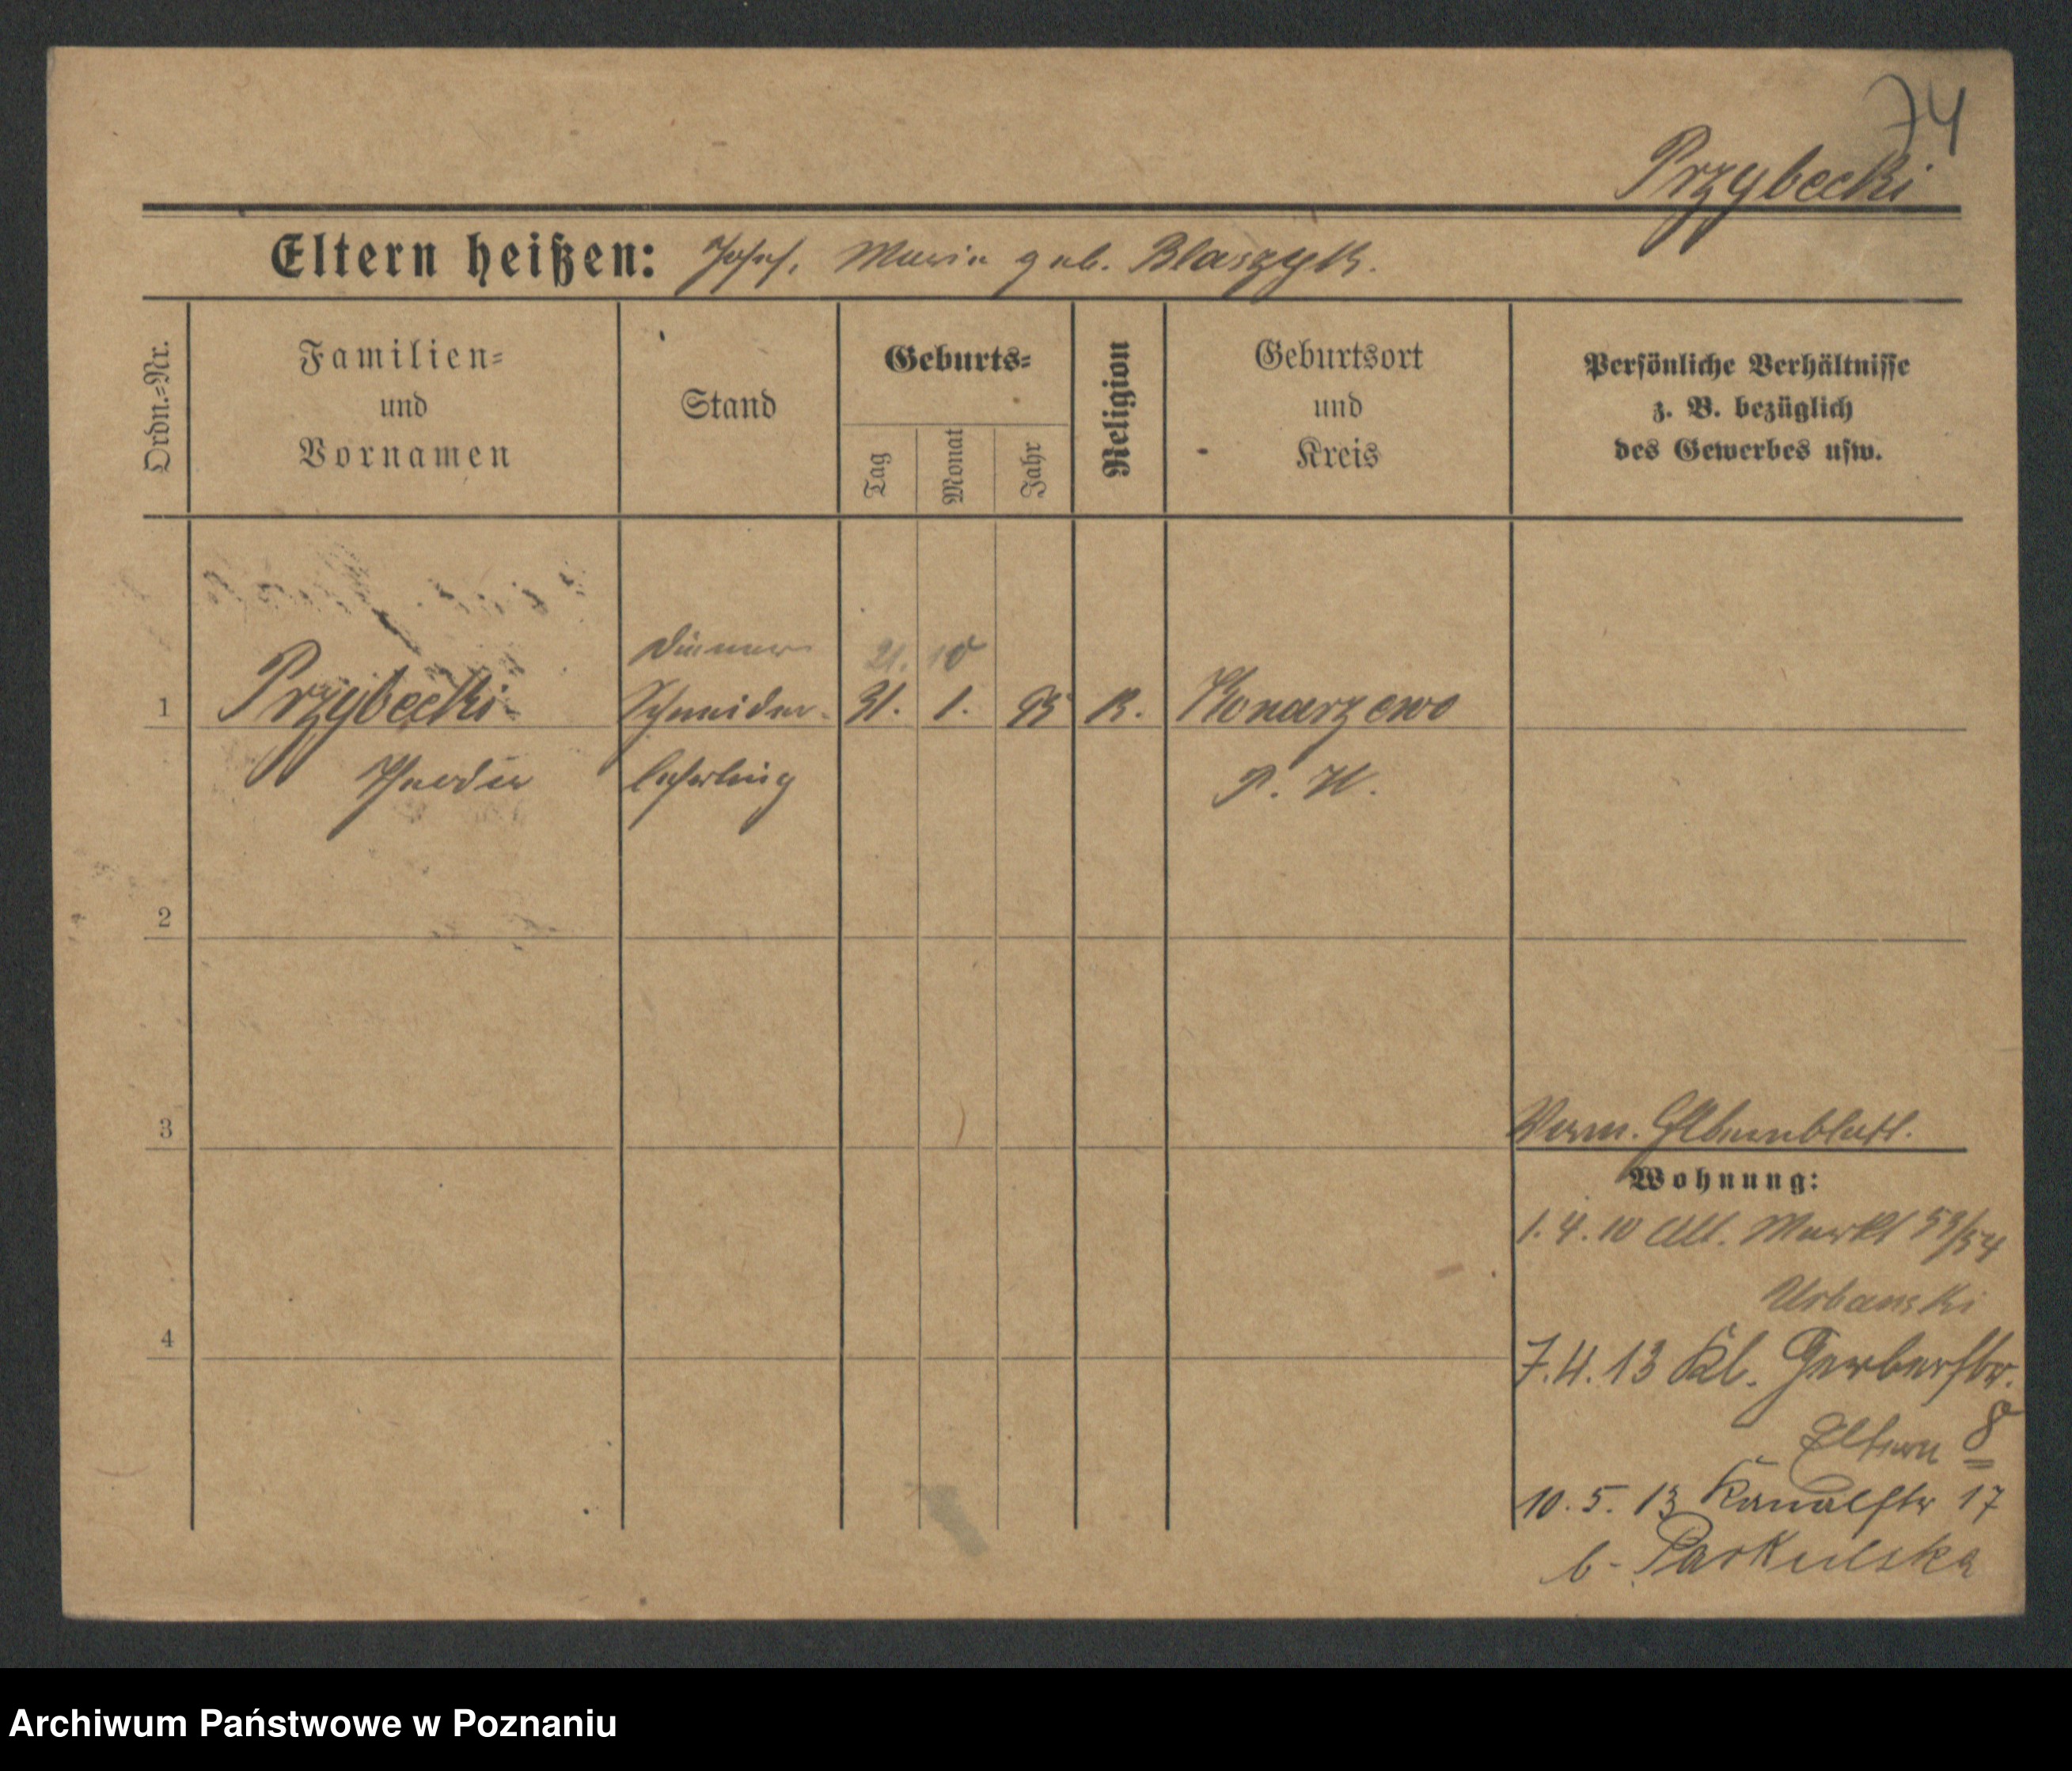 74
Przybecki
Eltern heißen: Josef, Maria geb. Blaszyk.
Ordn.=Nr.
Familien=
und
Vornamen
Stand
Geburts=
Tag
Monat
Jahr
Religion
Geburtsort
und
Kreis
Persönliche Verhältnisse
z. B. bezüglich
des Gewerbes usw.
Diener
21. 10
1 Przybecki Schneider- 31. 1. 95 K. Konarzewo
Theodor lehrling P. W.
2
3
Verm. Albumblatt.
Wohnung:
1.4.10 Alt. Markt 53/54
Urbanski
4
7.4.13 Kl. Gerberstr.
Eltern 8
10.5.13 Kanalstr 17
b- Parkulska
Archiwum Państwowe w Poznaniu